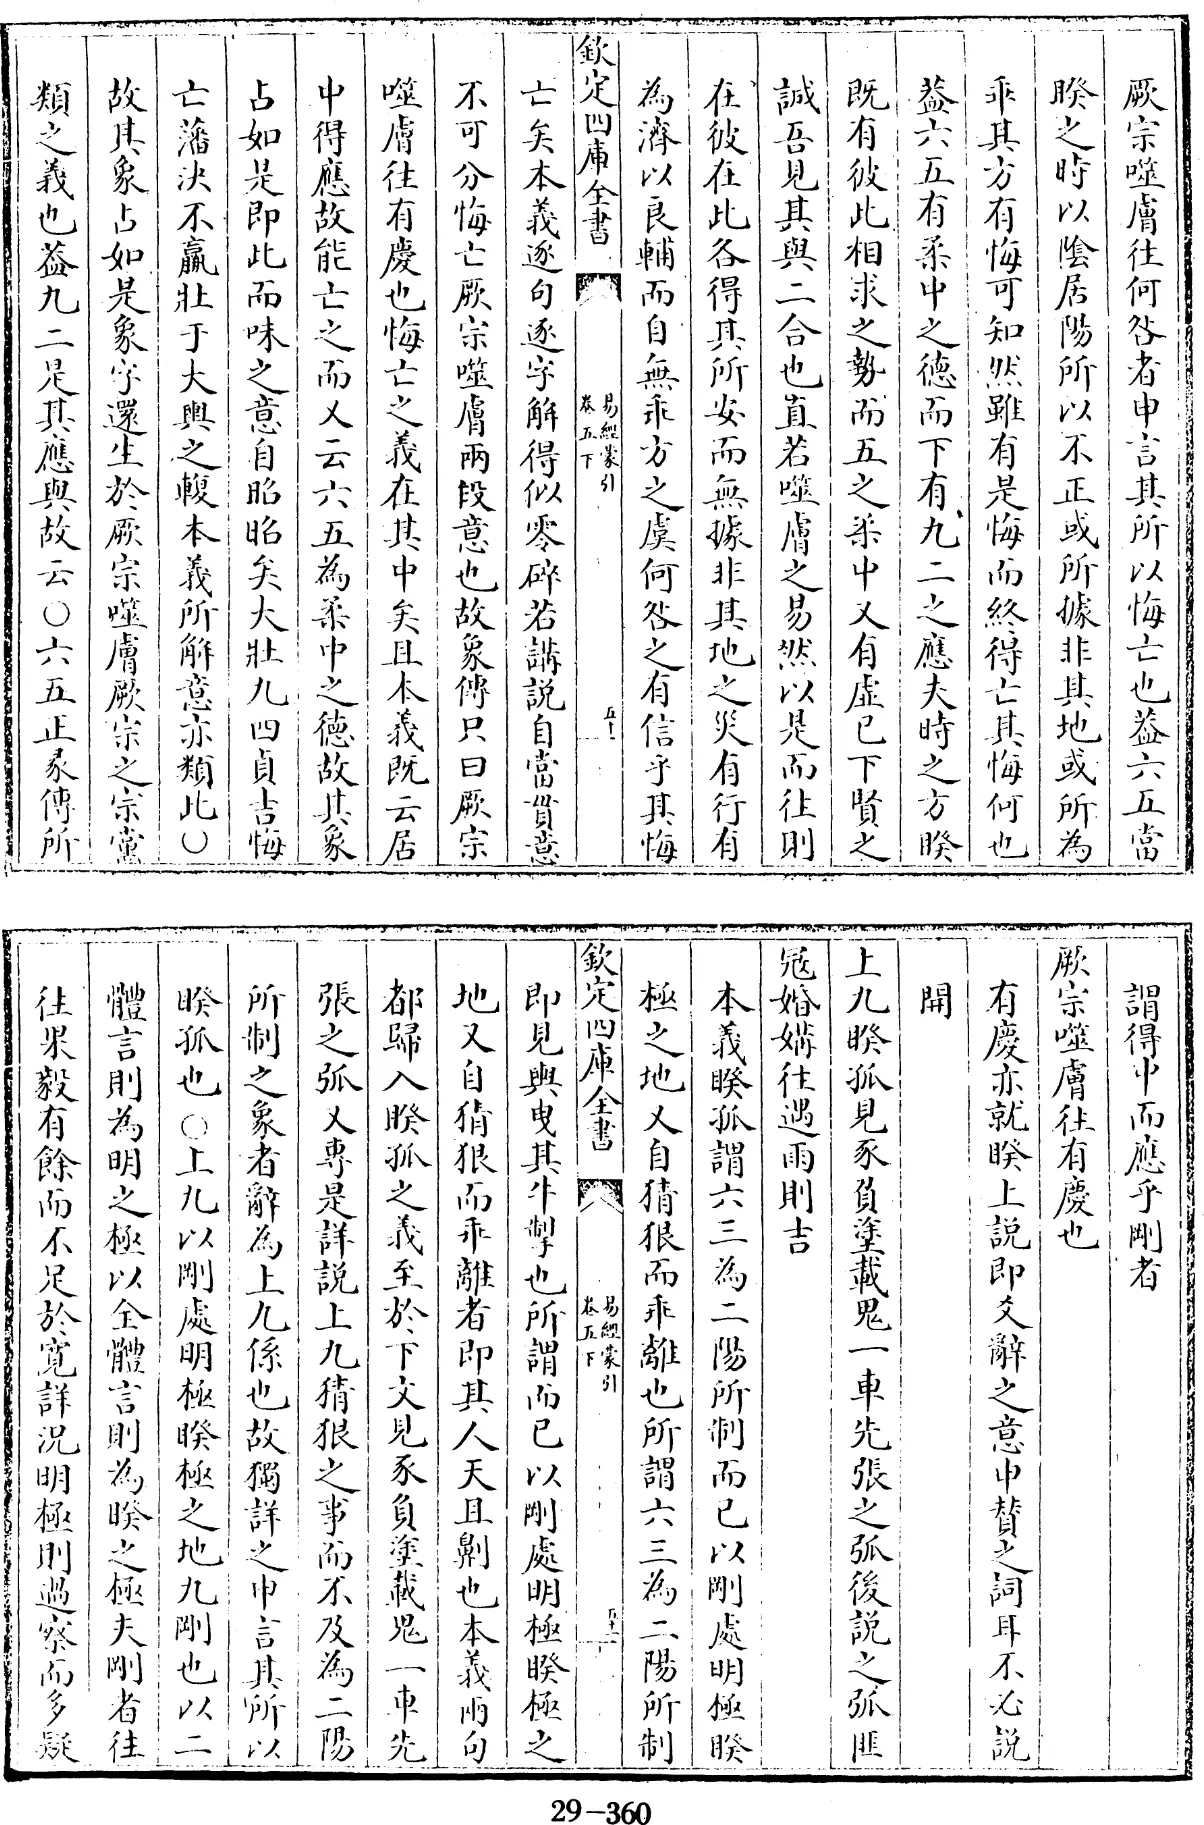 厥宗噬膚往何咎者申言其所以悔亡也葢六五當
睽之時以陰居陽所以不正或所據非其地或所為
乖其方有悔可知然雖有是悔而終得亡其悔何也
葢六五有柔中之德而下有九二之應夫時之方睽
既有彼此相求之勢而五之柔中又有虛已下賢之
誠吾見其與二合也直若噬膚之易然以是而往則
在彼在此各得其所安而無據非其地之災有行有
為濟以良輔而自無乖方之虞何咎之有信乎其悔
欽定四庫全書
易經蒙引
卷五下
五十一
亡矣本義逐句逐字解得似零碎若講說自當貫意
不可分悔亡厥宗噬膚兩段意也故象傳只曰厥宗
噬膚往有慶也悔亡之義在其中矣且本義既云居
中得應故能亡之而又云六五為柔中之德故其象
占如是即此而味之意自昭昭矣大壯九四貞吉悔
亡藩決不羸壯于大輿之輹本義所解意亦類此○
故其象占如是象字還生於厥宗噬膚厥宗之宗黨
類之義也葢九二是其應與故云○六五正彖傳所
謂得中而應乎剛者
厥宗噬膚往有慶也
有慶亦就睽上說即爻辭之意申賛之詞耳不必說
開
上九睽孤見豕負塗載鬼一車先張之弧後說之弧匪
冦婚媾往遇雨則吉
本義睽孤謂六三為二陽所制而已以剛處明極睽
極之地又自猜狠而乖離也所謂六三為二陽所制
欽定四庫全書
易經蒙引
卷五下
五十二
即見輿曳其牛掣也所謂而已以剛處明極睽極之
地又自猜狠而乖離者即其人天且劓也本義兩句
都歸入睽孤之義至於下文見豕負塗載鬼一車先
張之弧又專是詳說上九猜狠之事而不及為二陽
所制之象者辭為上九係也故獨詳之申言其所以
睽孤也○上九以剛處明極睽極之地九剛也以二
體言則為明之極以全體言則為睽之極夫剛者往
往果毅有餘而不足於寛詳況明極則過察而多疑
29-360